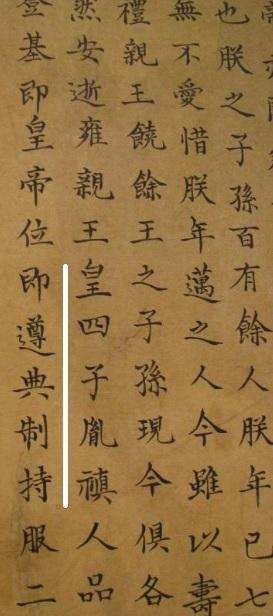 也朕之子孫百有餘人朕年已七
無不愛惜朕年邁之人今雖以壽
禮親王饒餘王之子孫現今俱各
然安逝雍親王皇四子胤禛人品
登基即皇帝位即遵典制持服二